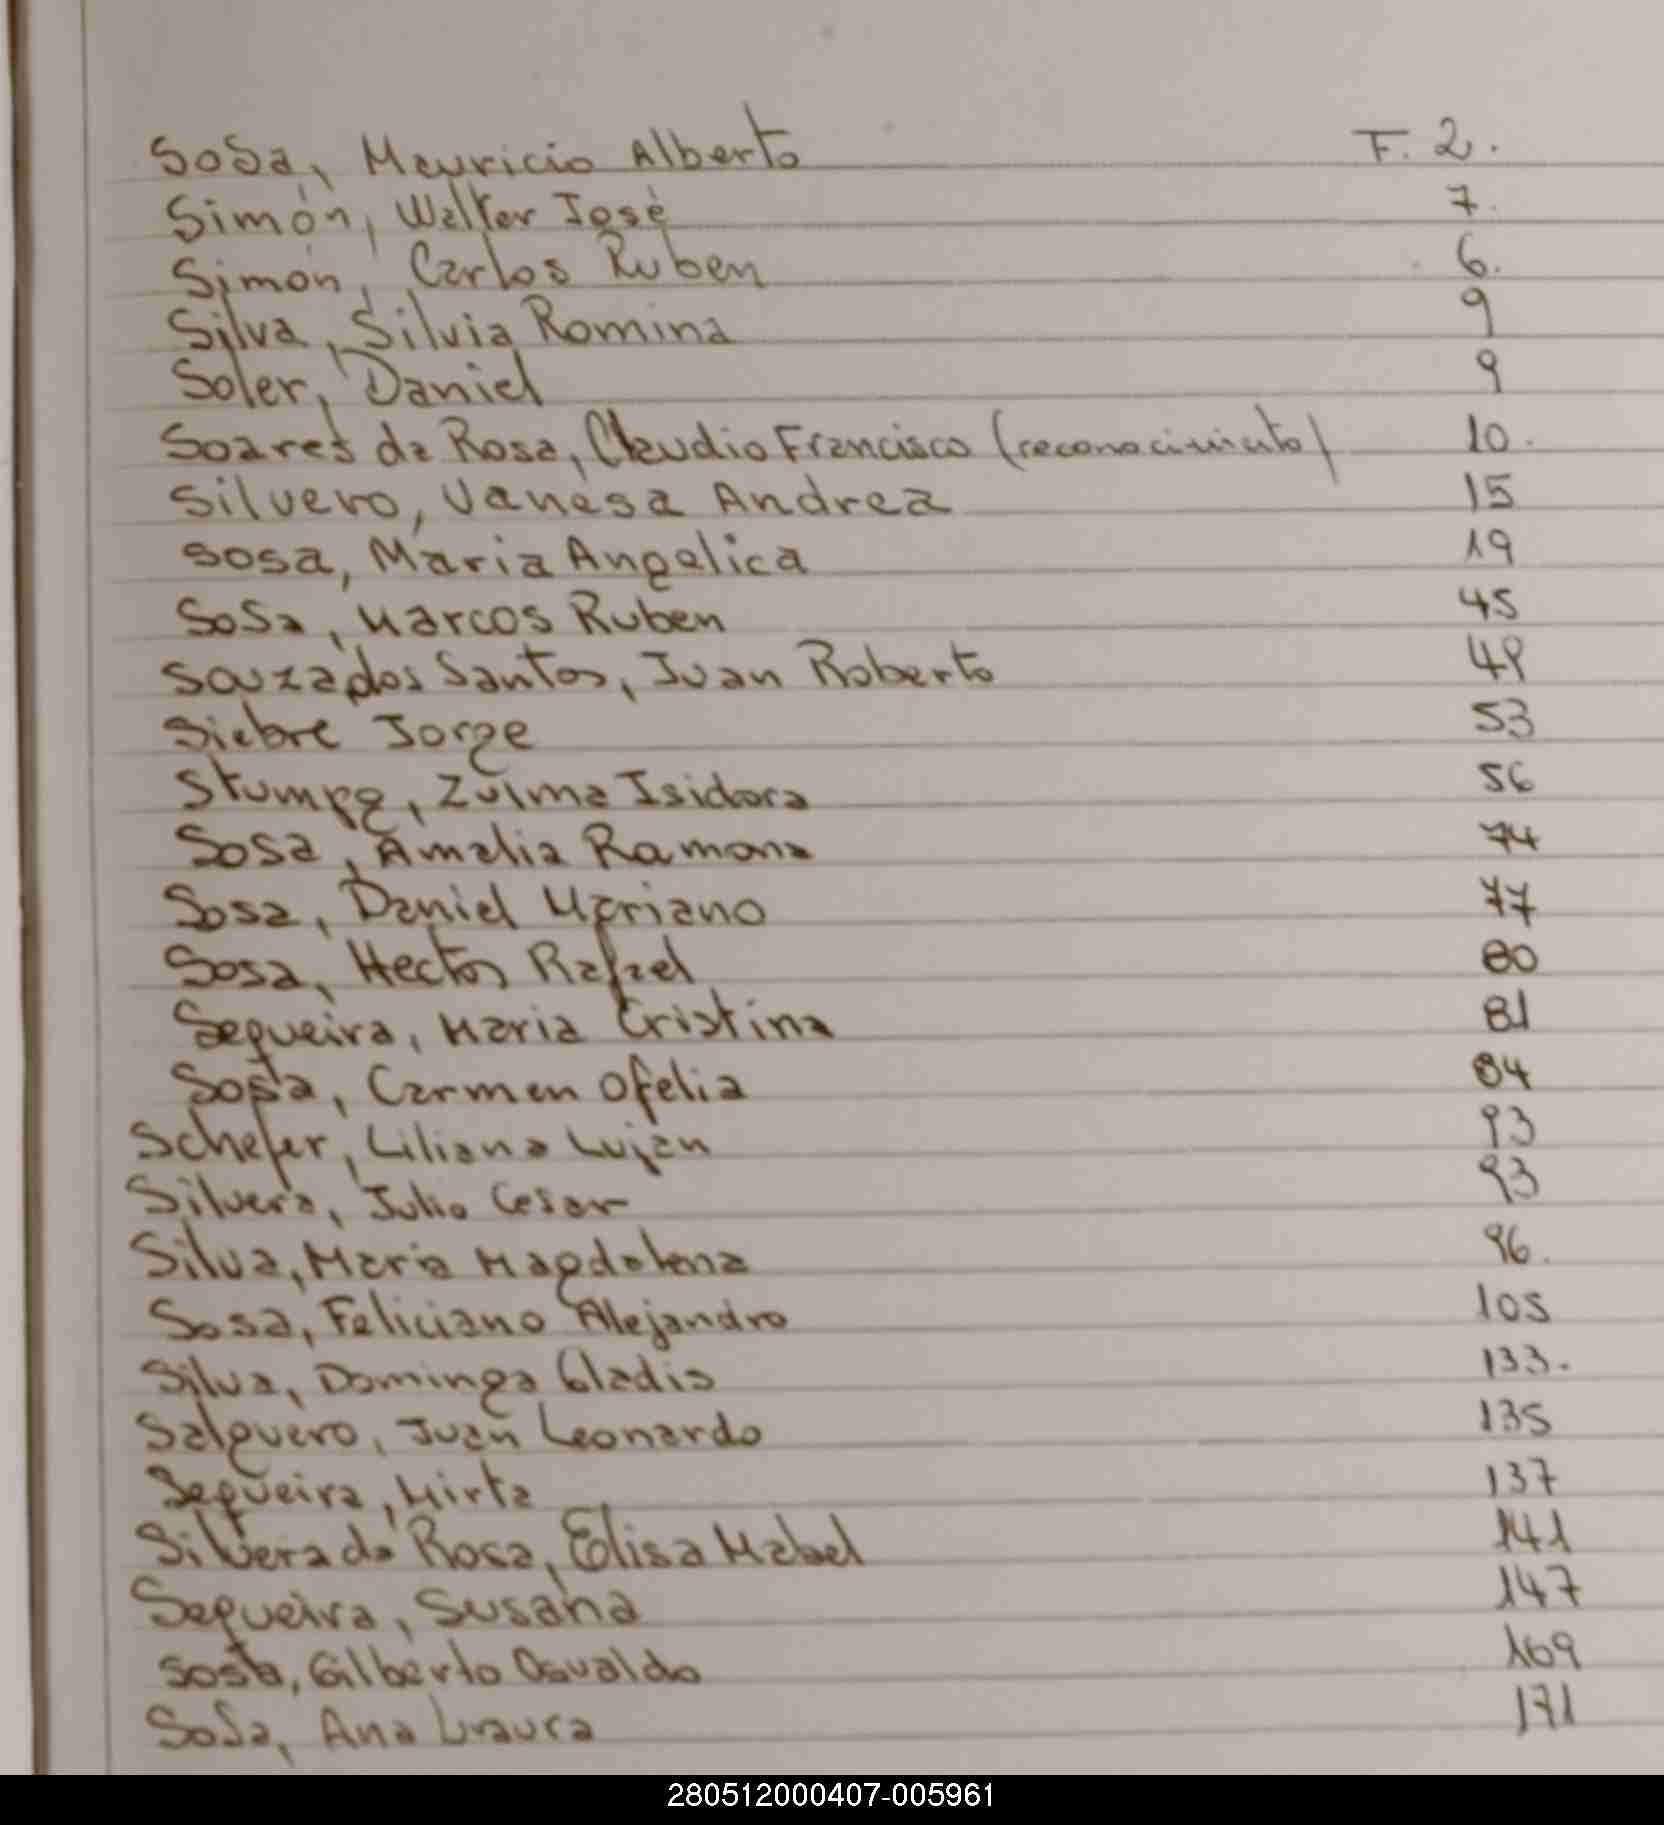 Sosa, Mauricio Alberto F. 2.
Simón, Walter José 7.
Simón, Carlos Ruben 6.
Silva, Silvia Romina 9
Soler, Daniel 9
Soares da Rosa, Claudio Francisco (reconocimiento) 10.
Silvero, Vanesa Andrea 15
Sosa, Maria Angelica 19
Sosa, Marcos Ruben 45
Souza dos Santos, Juan Roberto 49
Siebre Jorge 53
Zulma Isidora 56
Sosa, Amalia Ramona 74
Sosa, Daniel Mariano 77
Sosa, Hector Rafael 80
Sequeira, Maria Cristina 81
Sosa, Carmen Ofelia 84
Schefer, Liliana Lujan 93
Silvera, Julio Cesar 93
Silva, Maria Magdalena 96.
Sosa, Feliciano Alejandro 105
Silva, Dominga Gladis 133.
Salguero, Juan Leonardo 135
Sequeira, Mirta 137
Silvera da Rosa, Elisa Mabel 141
Sequeira, Susana 147
Sosa, Gilberto Osvaldo 169
Sosa, Ana 171
280512000407-005961